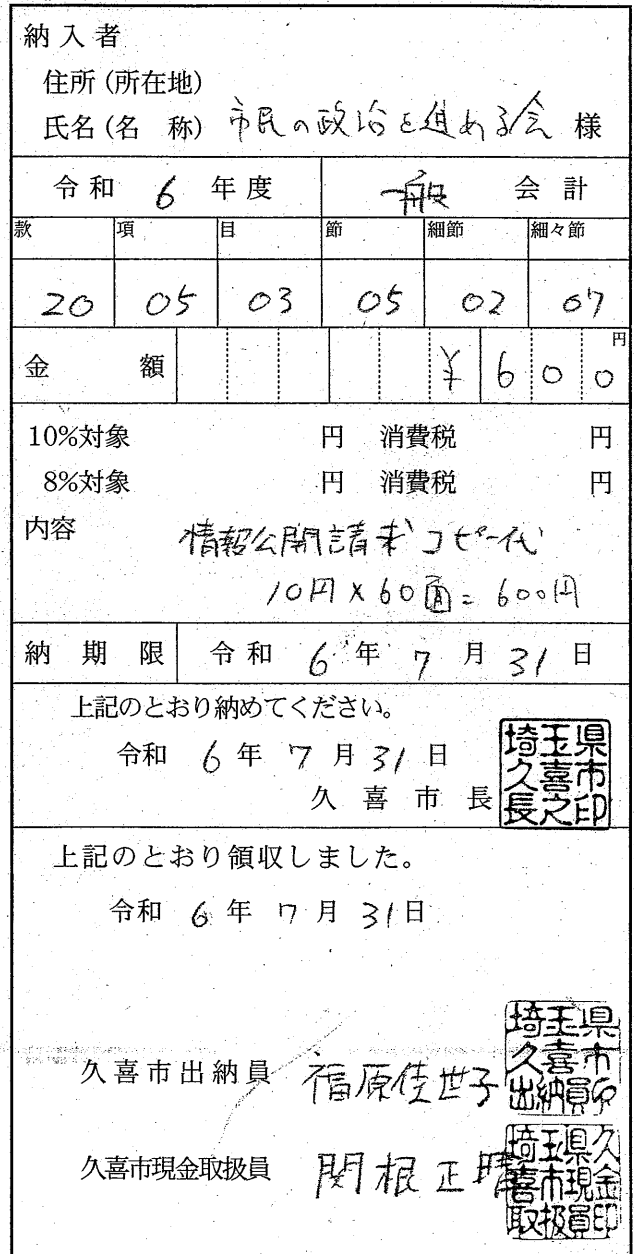 納入者
住所(所在地)
氏名(名 称) 市民の政治を進める会 様
令和 6 年度 一般 会計
款 項 目 節 細節 細々節
20 05 03 05 02 07
金 額 ¥ 6 0 0 円
10%対象 円 消費税 円
8%対象 円 消費税 円
内容 情報公開請求コピー代
10円×60面=600円
納期限 令和 6 年 7 月 31 日
上記のとおり納めてください。
令和 6 年 7 月 31 日
久喜市長
埼玉県久喜市長之印
上記のとおり領収しました。
令和 6 年 7 月 31 日
久喜市出納員 福原佳世子
埼玉県久喜市出納員印
久喜市現金取扱員 関根正晴
埼玉県久喜市現金取扱員印